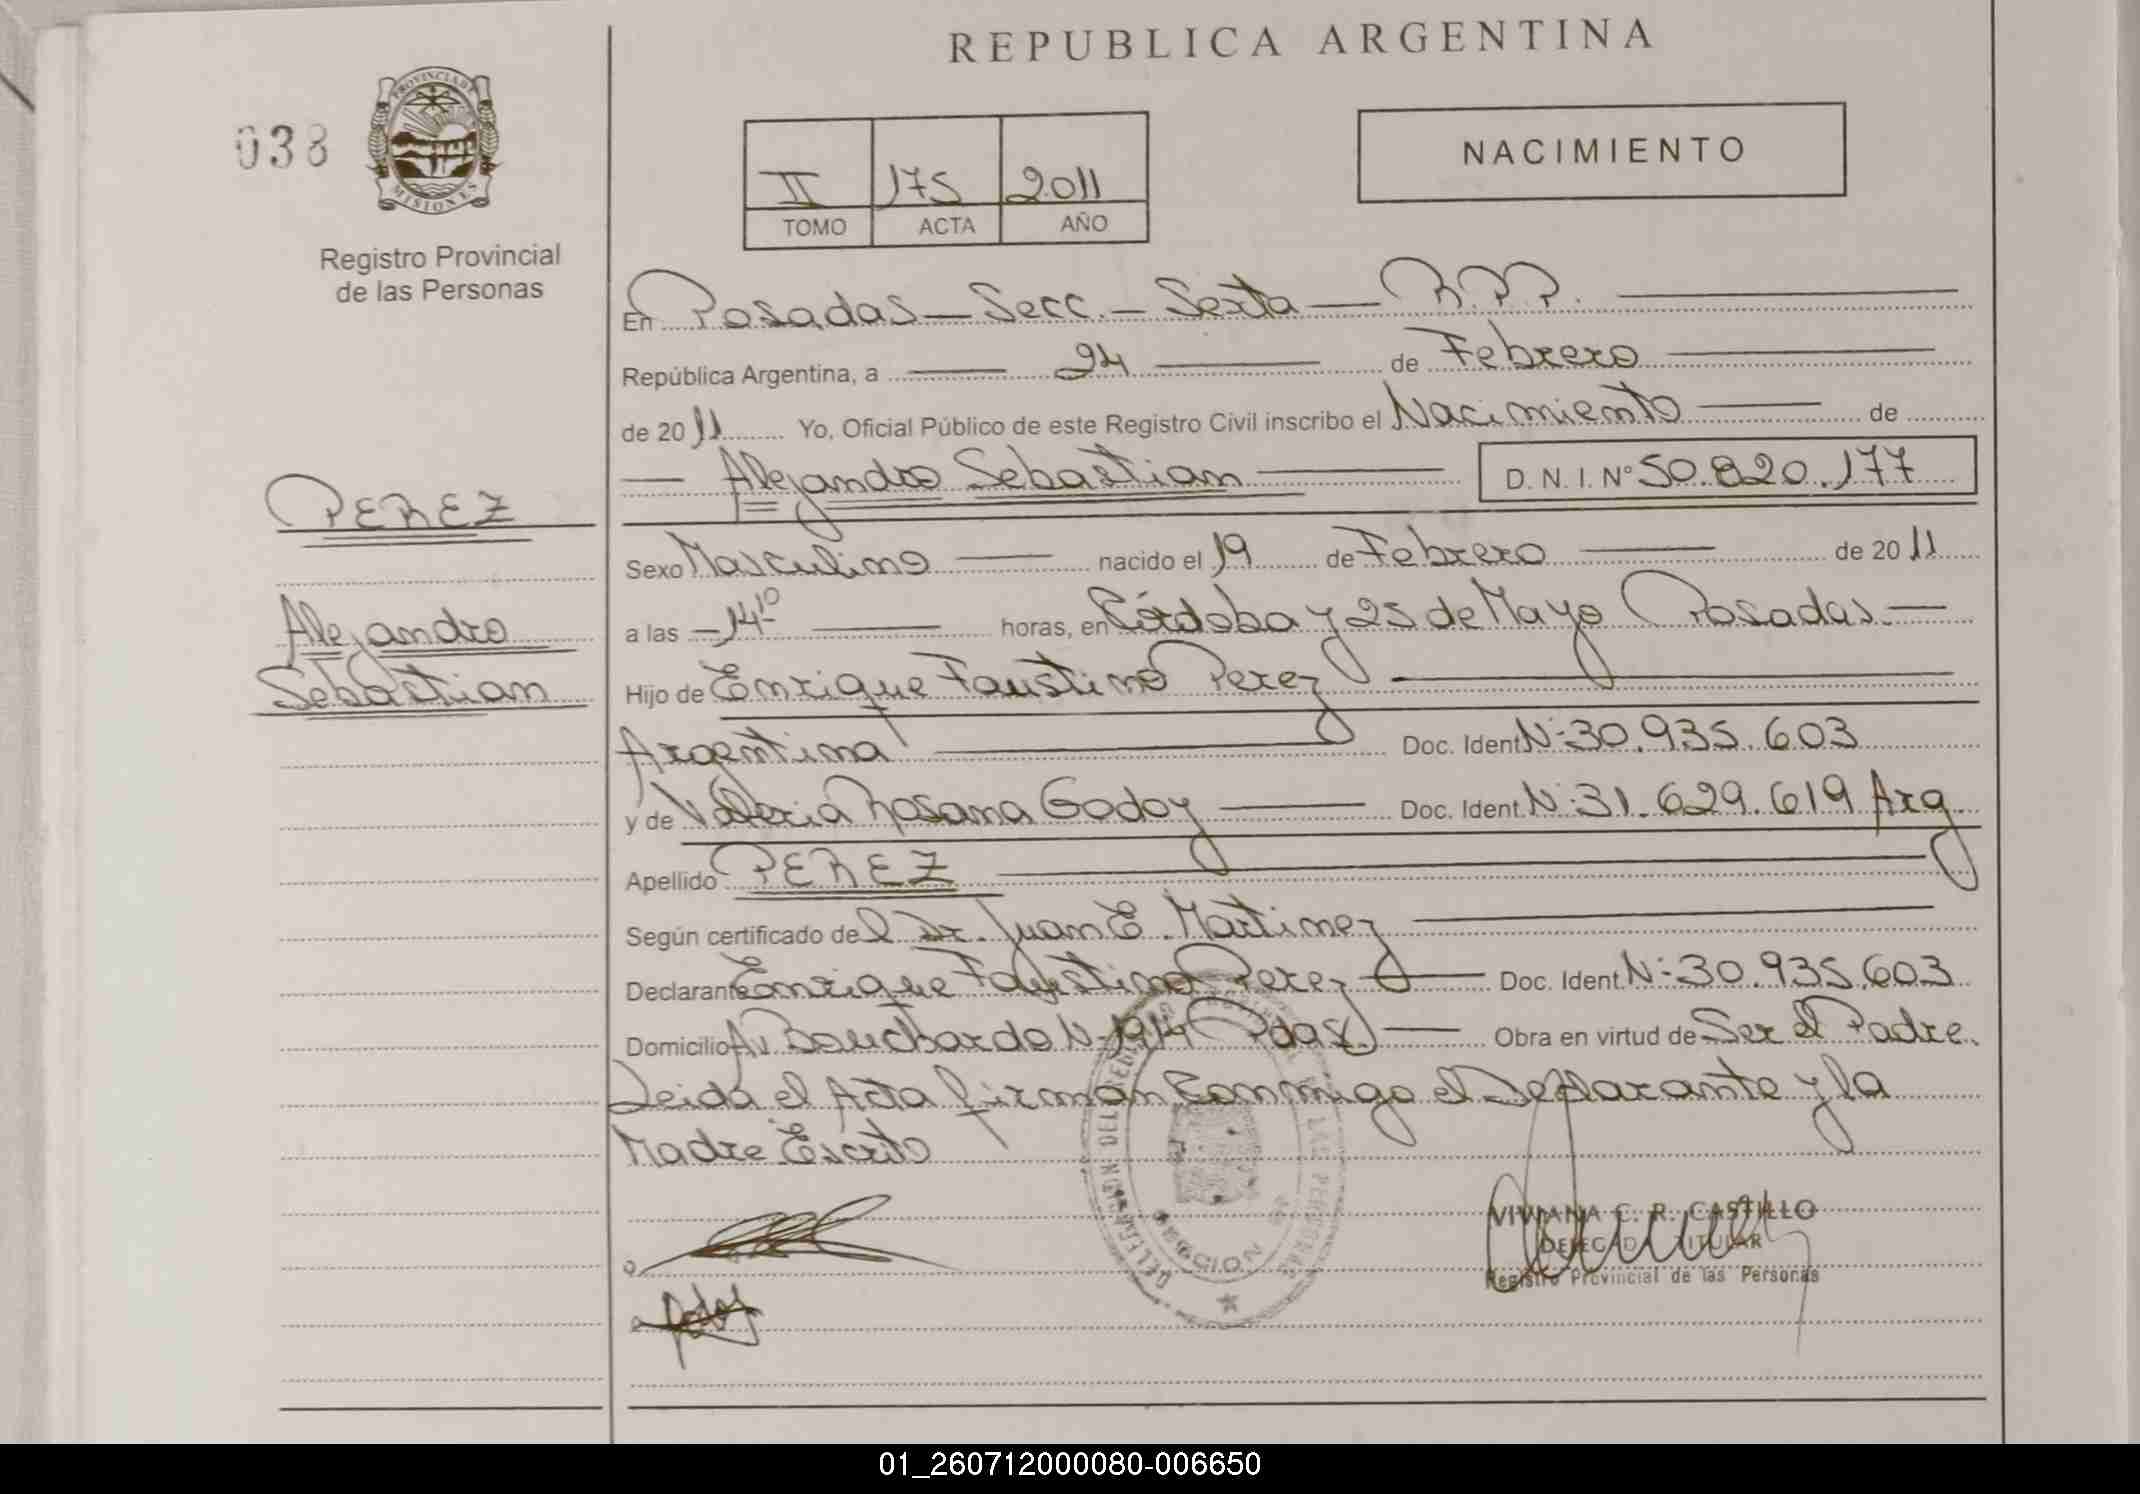 REPUBLICA ARGENTINA
038
PROVINCIA DE
MISIONES
Registro Provincial
de las Personas
II 175 2011
TOMO ACTA AÑO
NACIMIENTO
En Posadas - Secc. - Sexta - R.P.P.
República Argentina, a 24 de Febrero
de 2011 Yo, Oficial Público de este Registro Civil inscribo el Nacimiento de
Alejandro Sebastian D. N. I. Nº 50.820.177
PEREZ
Alejandro
Sebastian
Sexo Masculino nacido el 19 de Febrero de 2011
a las 14 10 horas, en Córdoba y 25 de Mayo Posadas.
Hijo de Enrique Faustino Perez
Argentina Doc. Ident. Nº 30.935.603
y de Valeria Rosana Godoy Doc. Ident. Nº 31.629.619 Arg
Apellido PEREZ
Según certificado del Dr. Juan E. Martinez
Declarante Enrique Faustino Perez Doc. Ident. Nº 30.935.603
Domicilio Av Bouchardo Nº 1914 Pdas Obra en virtud de Ser el Padre.
Leida el Acta firman Conmigo el Declarante y la
Madre Escrito
VIVIANA C. R. CASTILLO
DELEGADA TITULAR
Registro Provincial de las Personas
01_260712000080-006650